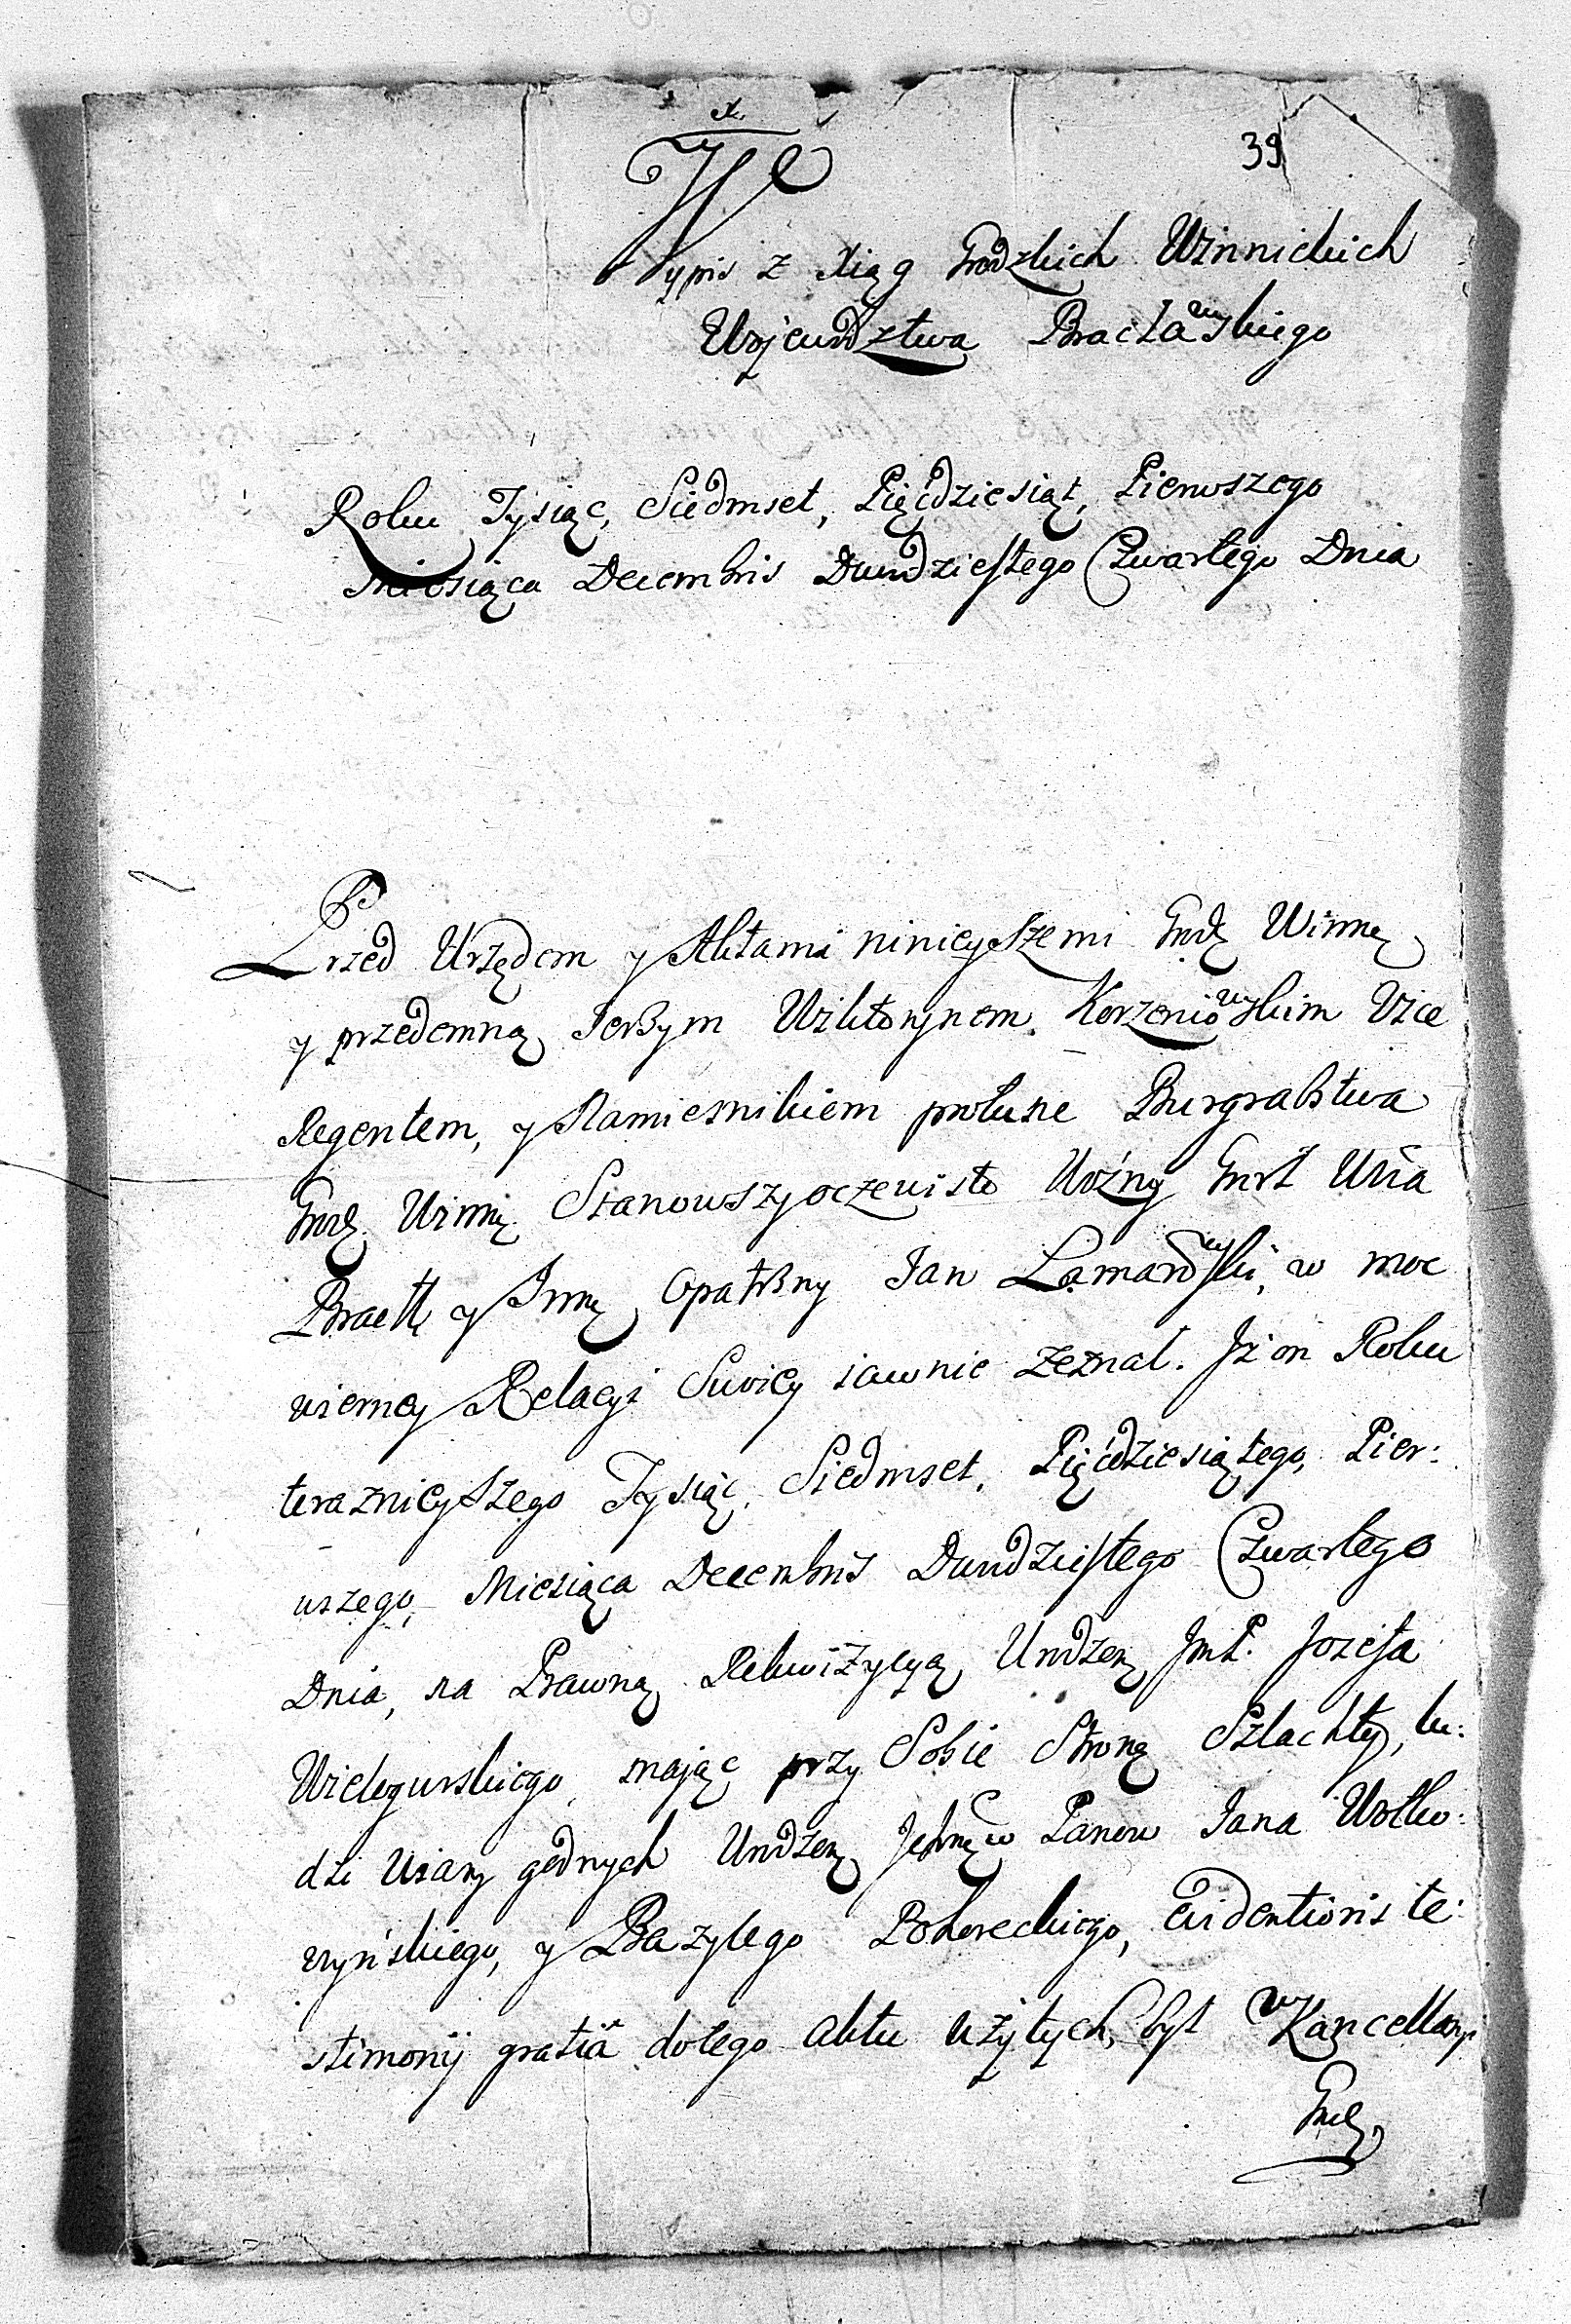 39
Wypis z Xiąg Grodzkich Winnickich
Wojewodztwa Bracławskiego
Roku Tysiąc, Siedmset, Pięćdziesiąt, Pierwszego
Miesiąca Decembris Dwudziestego Czwartego Dnia
Przed Urzędem y Aktami ninieyszemi Grodz Winnę
y przedemną Jerzym Wiktorynem Korzeniowskim Vice
Regentem, y Namiesnikiem protunc Burgrabstwa
Grodz Winnę Stanowszy oczewisto Woźny Gnrł Wta
Bracłł y Innę Opatrzny Jan Lamarowski, w moc
wierney Relacyi Swoiey iawnie zeznał. Jż on Roku
teraznieyszego Tysiąc, Siedmset, Pięćdziesiątego, Pier:
wszego, Miesiąca Decembris Dwudziestego Czwartego
Dnia, na Prawną Rekwizycyą Urodzonę JmP. Jozefa
Wielegurskiego, mając przy Sobie Stronę Szlachtę, lu:
dzi wiary godnych Urodzonę Panow Jana Wołko:
wyńskiego, y Bazylego Bohoreckiego, Evidentioris te:
stimonij gratiâ dotego aktu użytych, był w Kancellaryi
Grodz